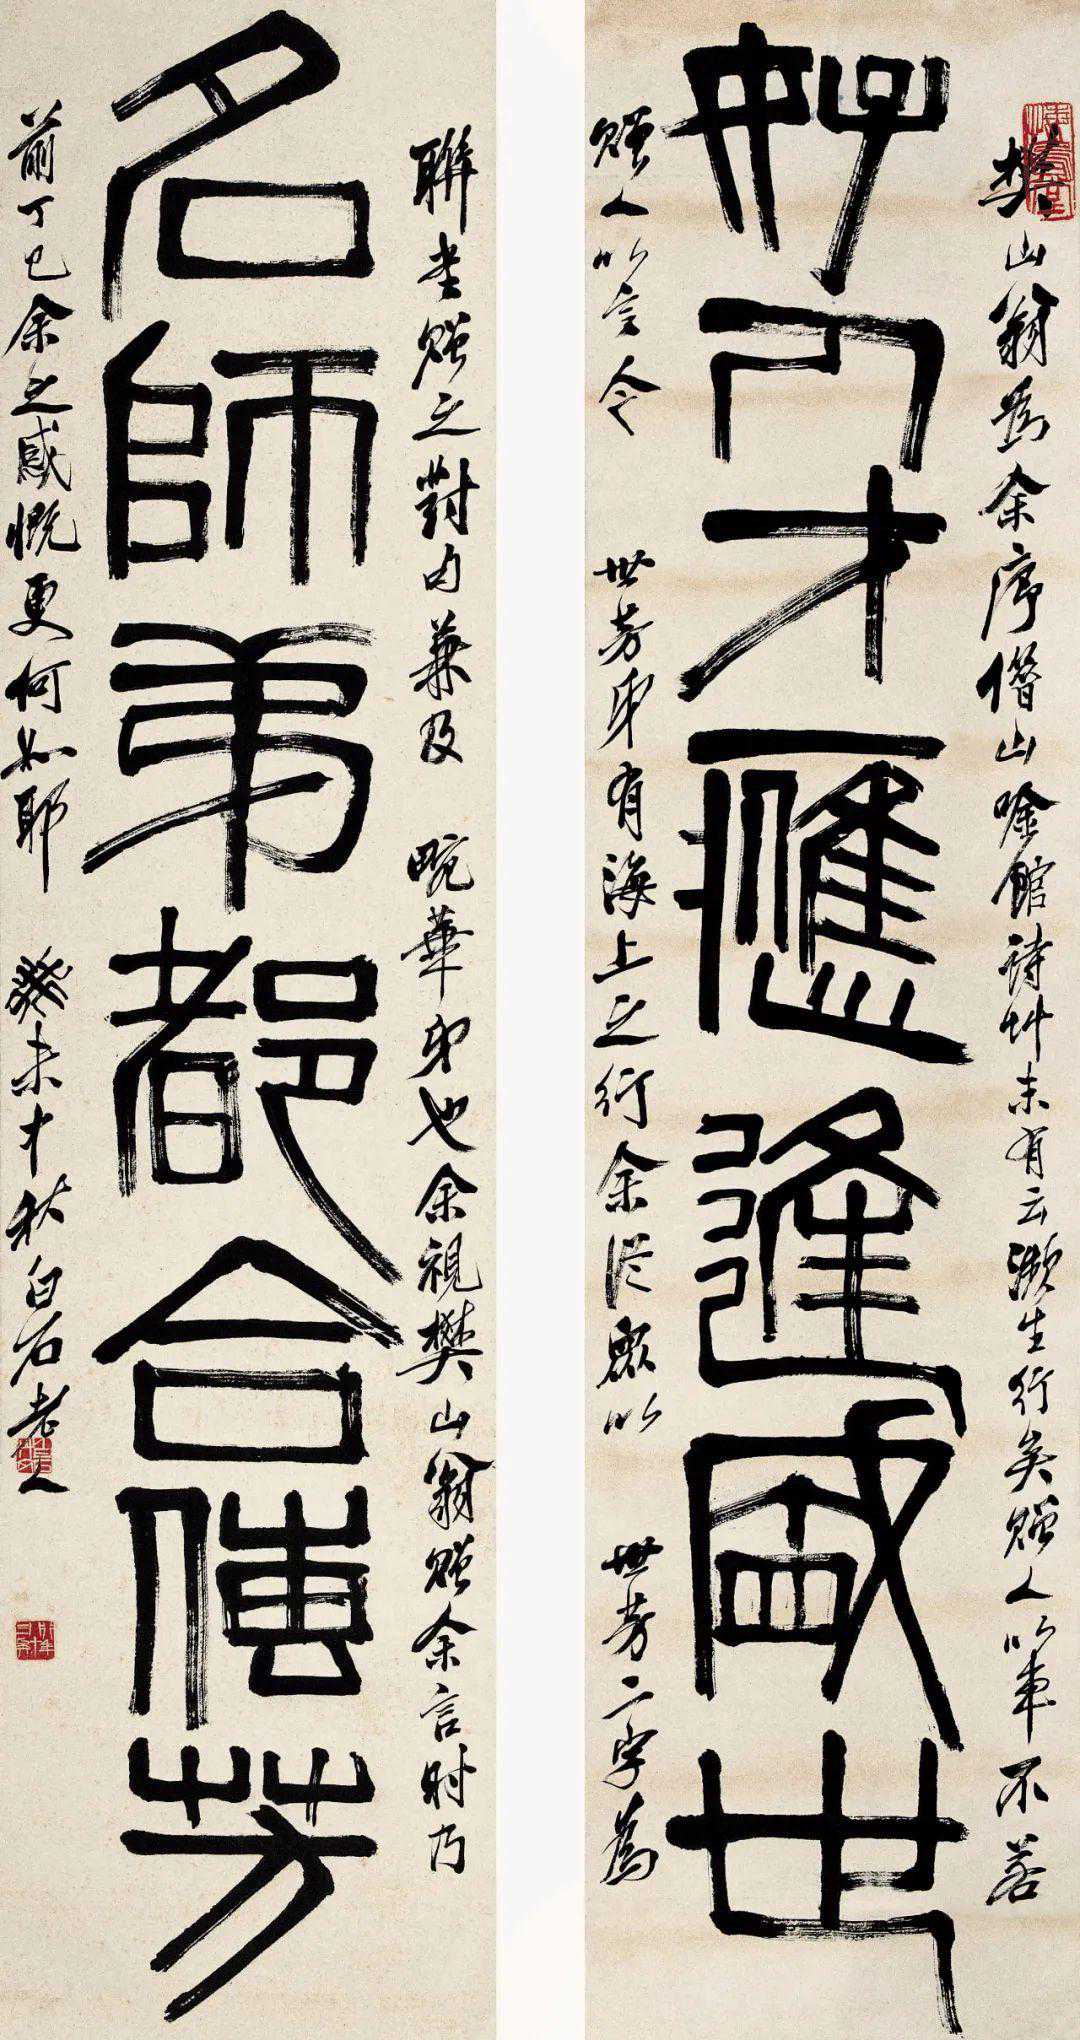 樊山翁為余序借山唫館詩艸末有云瀕生行矣贈人以車不若
好人才應逢盛世
贈人以言今 世芳弟有海上之行余從眾以 世芳二字為
聯書贈之對內兼及 畹華弟也余視樊山翁贈余言時乃
名師弟都合傳芳
前丁巳余之感慨更何如耶 癸未中秋白石老人